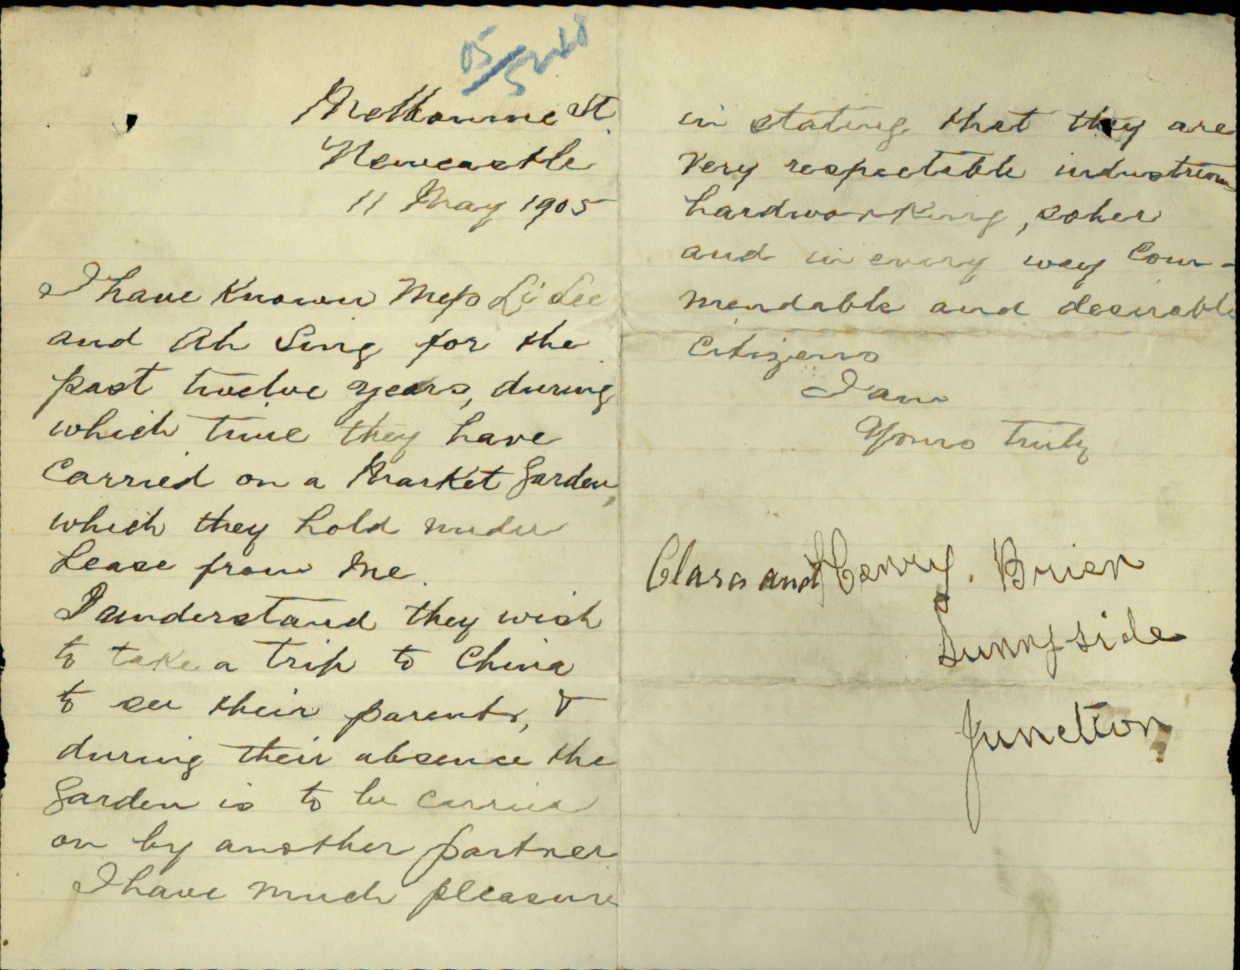 05/5240
Melbourne St.
Newcastle
11 May 1905
I have known Mess Li Lee
and Ah Sing for the
past twelve years, during
which time they have
carried on a Market Garden,
which they hold under
Lease from me.
I understand they wish
to take a trip to China
to see their parents, &
during their absence the
Garden is to be carried
on by another partner
I have much pleasure
in stating that they are
very respectable industrious
hardworking, sober
and in every way Com-
mendable and desirable
Citizens
I am
Yours truly
Clara and Henry. Brien
Sunny-side
Junction